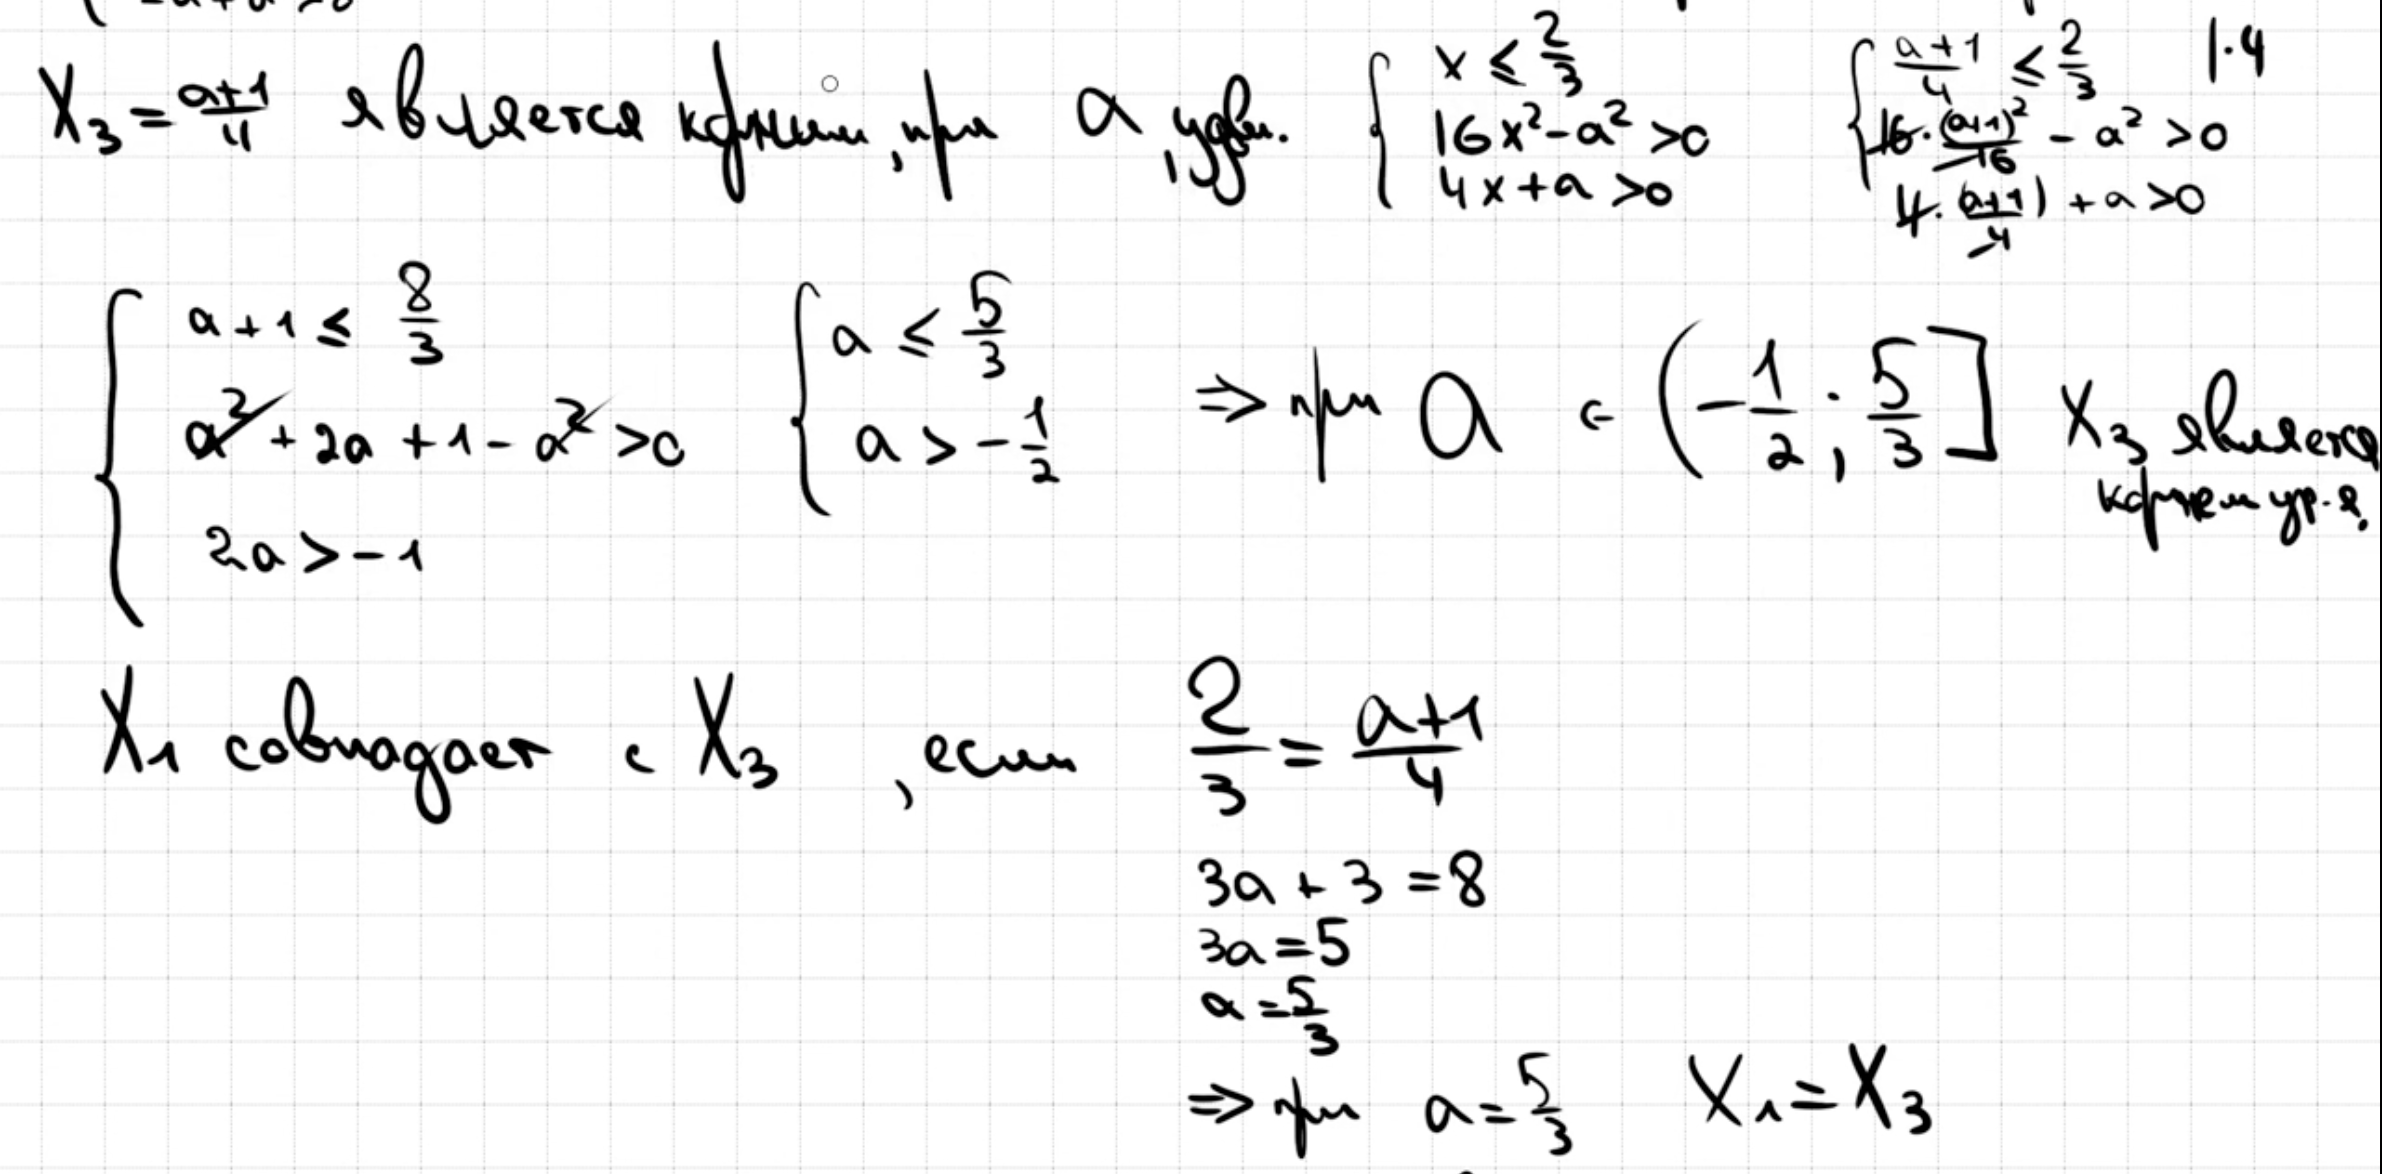 X₃ = (a+1)/4 является корнем, при a, удовл. { x ≤ 2/3 { (a+1)/4 ≤ 2/3 |·4
16x² - a² > 0 16·(a+1)²/16 - a² > 0
4x + a > 0 4·(a+1)/4 + a > 0
{ a + 1 ≤ 8/3 { a ≤ 5/3
a² + 2a + 1 - a² > 0 a > -1/2 ⇒ при a ∈ (-1/2; 5/3] X₃ является
корнем ур-я.
2a > -1
X₁ совпадает с X₃, если 2/3 = (a+1)/4
3a + 3 = 8
3a = 5
a = 5/3
⇒ при a = 5/3 X₁ = X₃